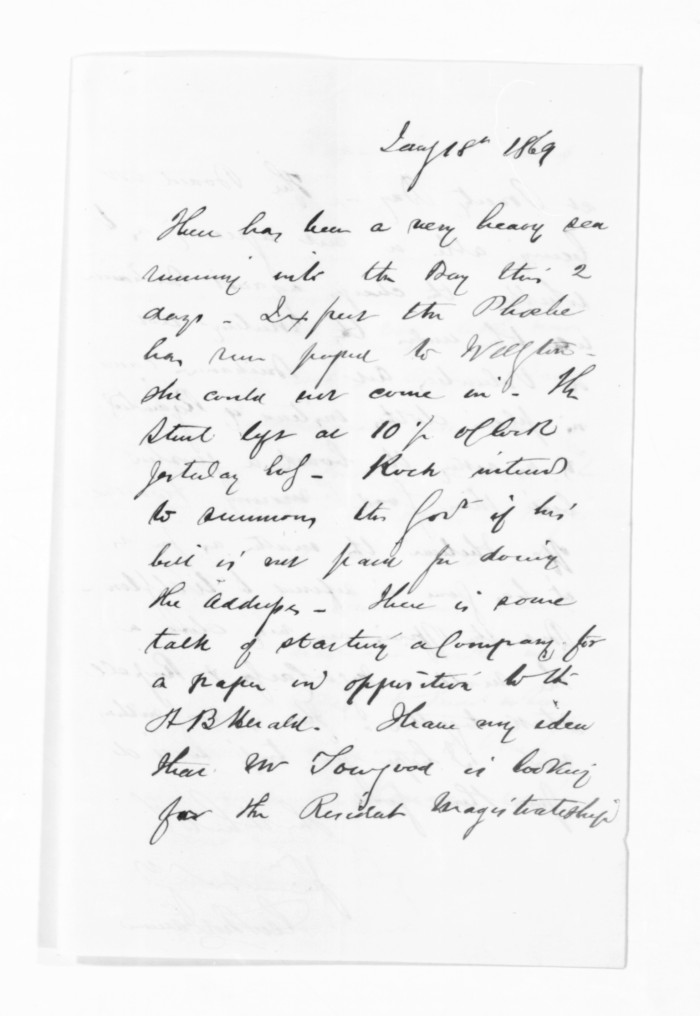 Jany 18th 1869
There has been a very heavy sea
running into the Bay this 2
days - Expect the Phoebe
has run passed to Wellgton -
she could not come in - The
Sturt left at 10 o'clock
yesterday - Rock intend
to summons the Govt if his
bill is not paid for doing
the Addresses - There is some
talk of starting a Company for
a paper in opposition to the
H B Herald. I have my idea
that Mr Towgood is looking
for the Resident Magistrateship